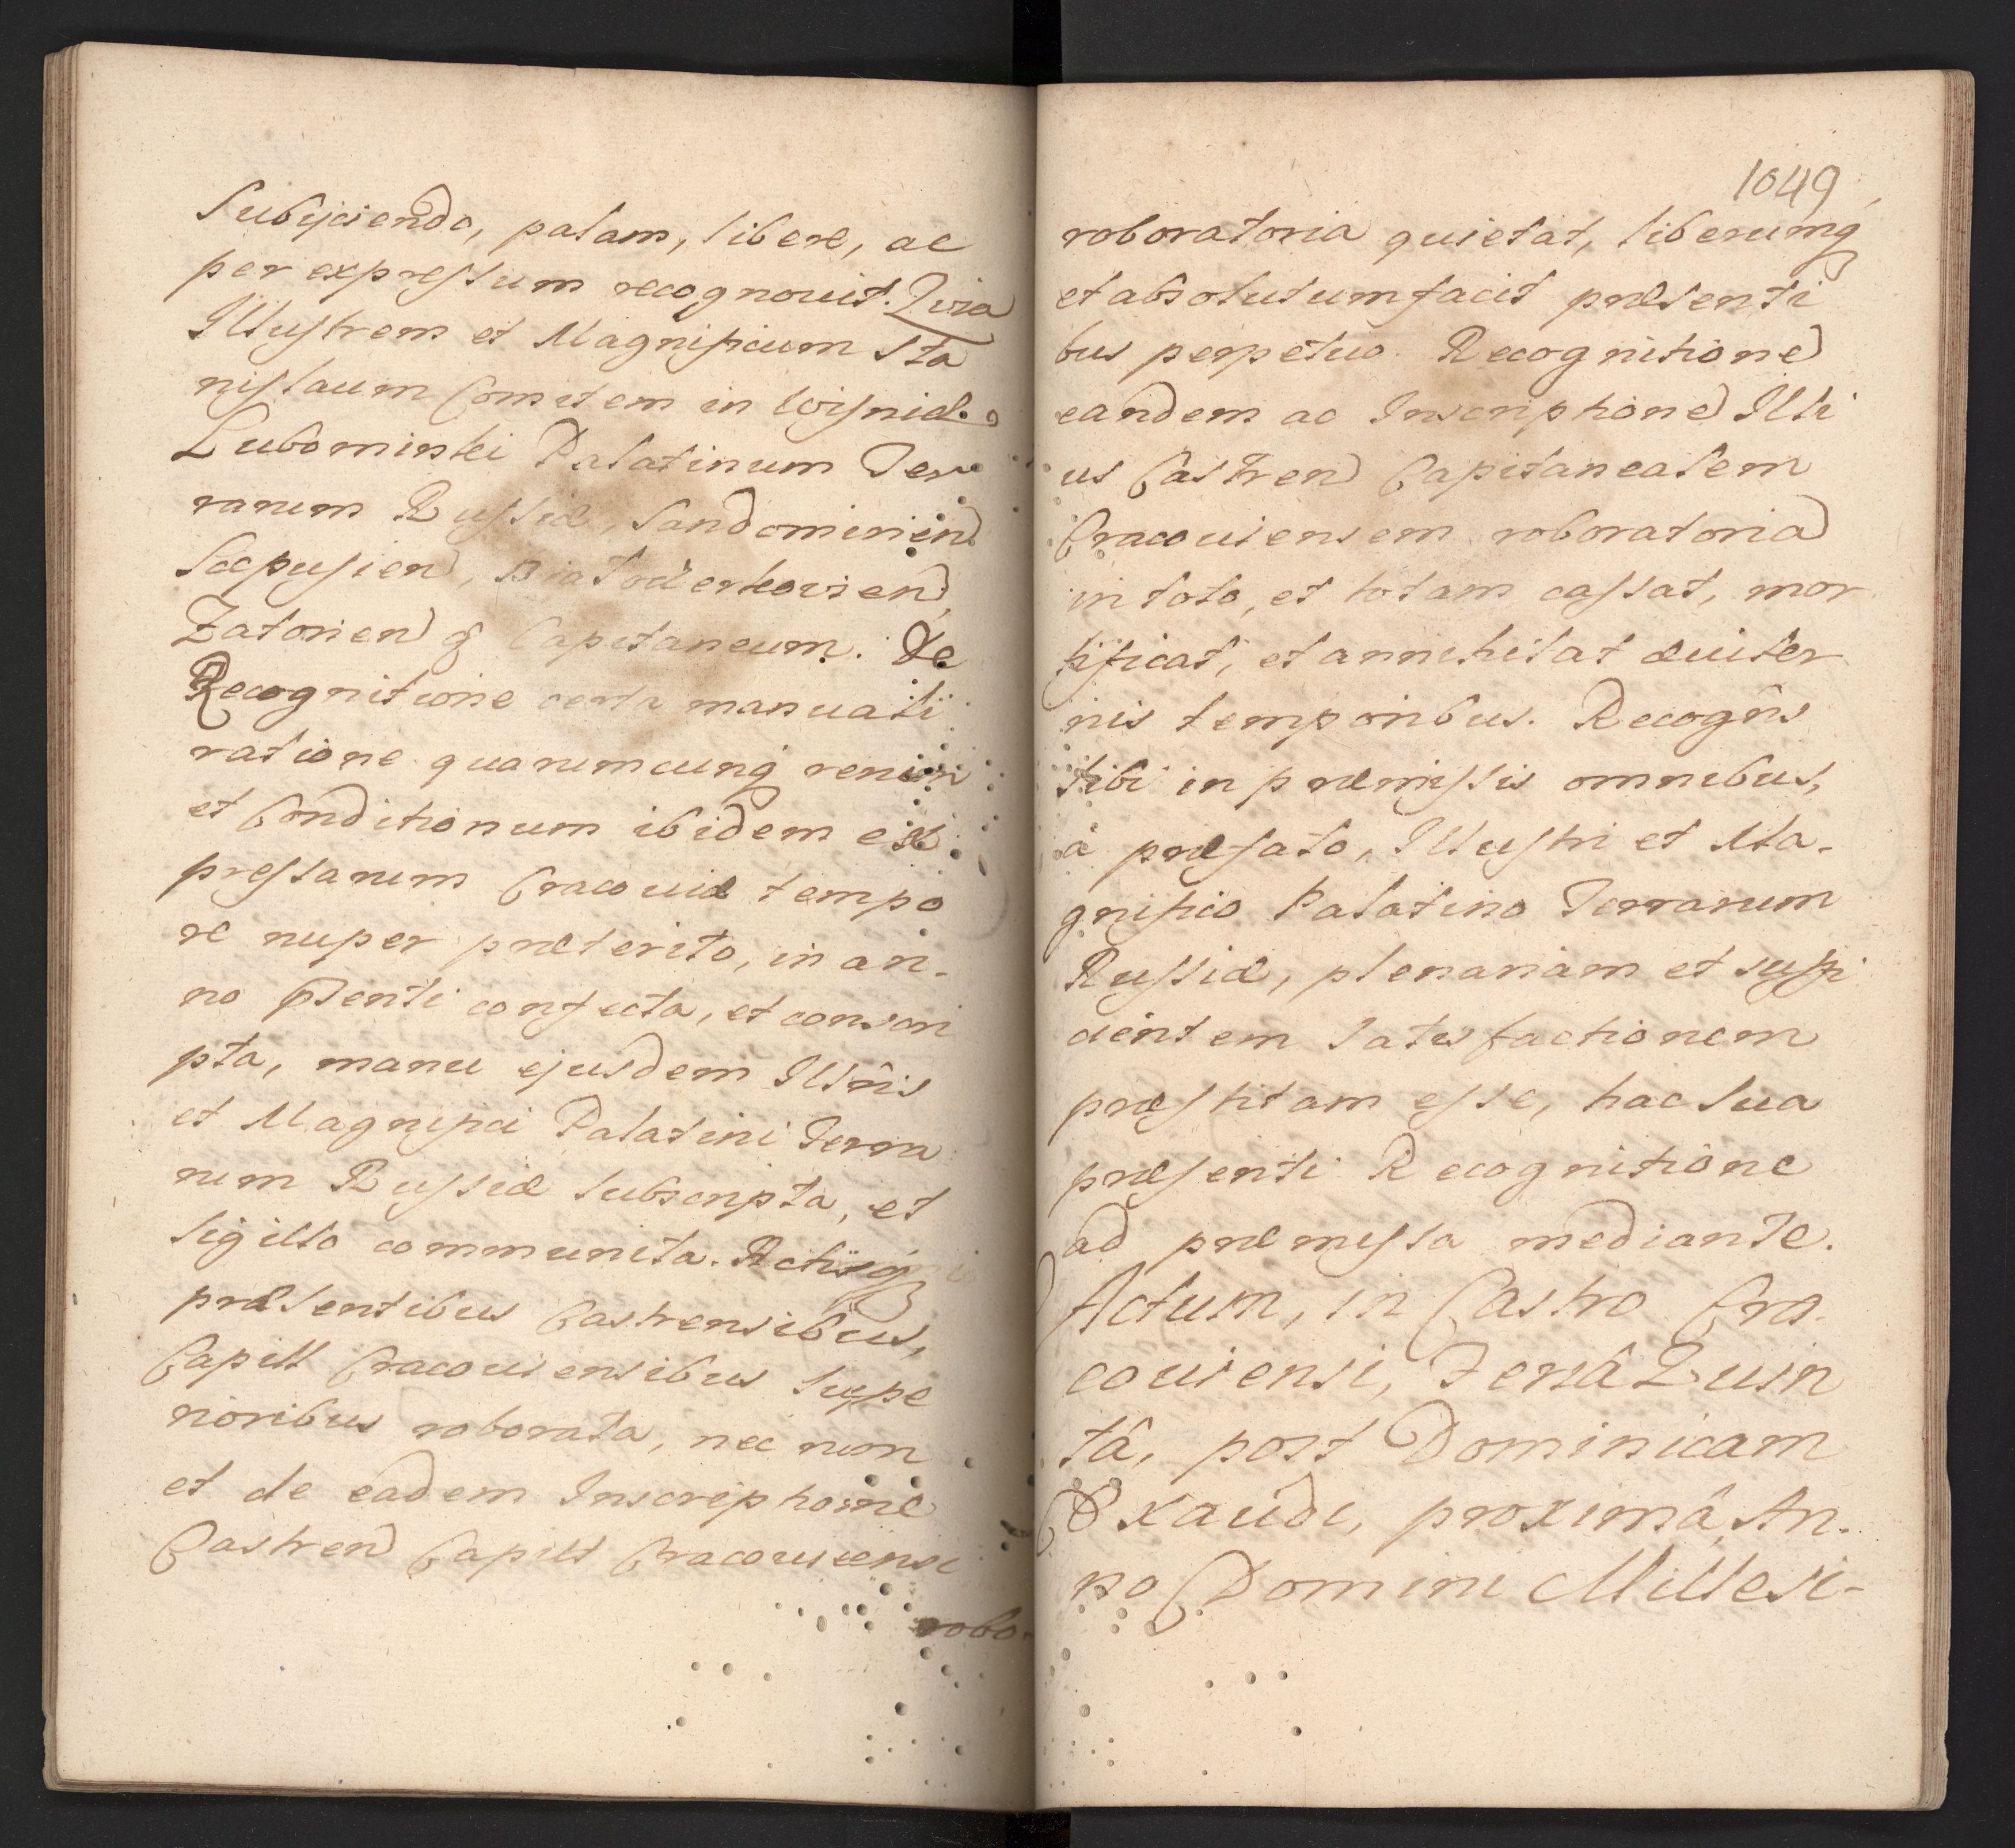 Subijciendo, palam, libere, ac
per expressum recognovit. Quia
Illustrem et Magnificum Sta
nislaum Comitem in Wisnicz
Lubomirski Palatinum Ter
rarum Russiæ, Sandomirien
Scepusien, Białocerkovien,
Zatorien q Capitaneum. De
Recognitione certa manuali
ratione quarumcunq rerum
et Conditionum ibidem ex
pressarum Cracoviæ tempo
re nuper præterito, in an-
no pśenti confecta, et conscri
pta, manu ejusdem Illris
et Magnifici Palatini Terra
rum Russiæ subscripta, et
sigillo communita. Actisq
præsentibus Castrensibus,
Capitt Cracoviensibus Supe
rioribus roborata, nec non
et de eadem Inscriptione
Castren Capitt Cracoviensi
robo-
1049
roboratoria quietat, liberumq
et absolutum facit præsenti
bus perpetuo. Recognitione
eandem ac Inscriptione Illi
us Castren Capitanealem
Cracoviensem roboratoria
in toto, et totam cassat, mor
tificat, et annihilat æviter
nis temporibus. Recogns
sibi in præmissis omnibus,
à præfato, Illustri et Ma-
gnifico Palatino Terrarum
Russiæ, plenariam et suffi
cientem satisfactionem
præstitam esse, hac sua
præsenti Recognitione
ad præmissa mediante.
Actum, in Castro Cra-
coviensi, Feriâ Quin
tâ, post Dominicam
Exaudi, proximâ, An-
no Domini Millesi-